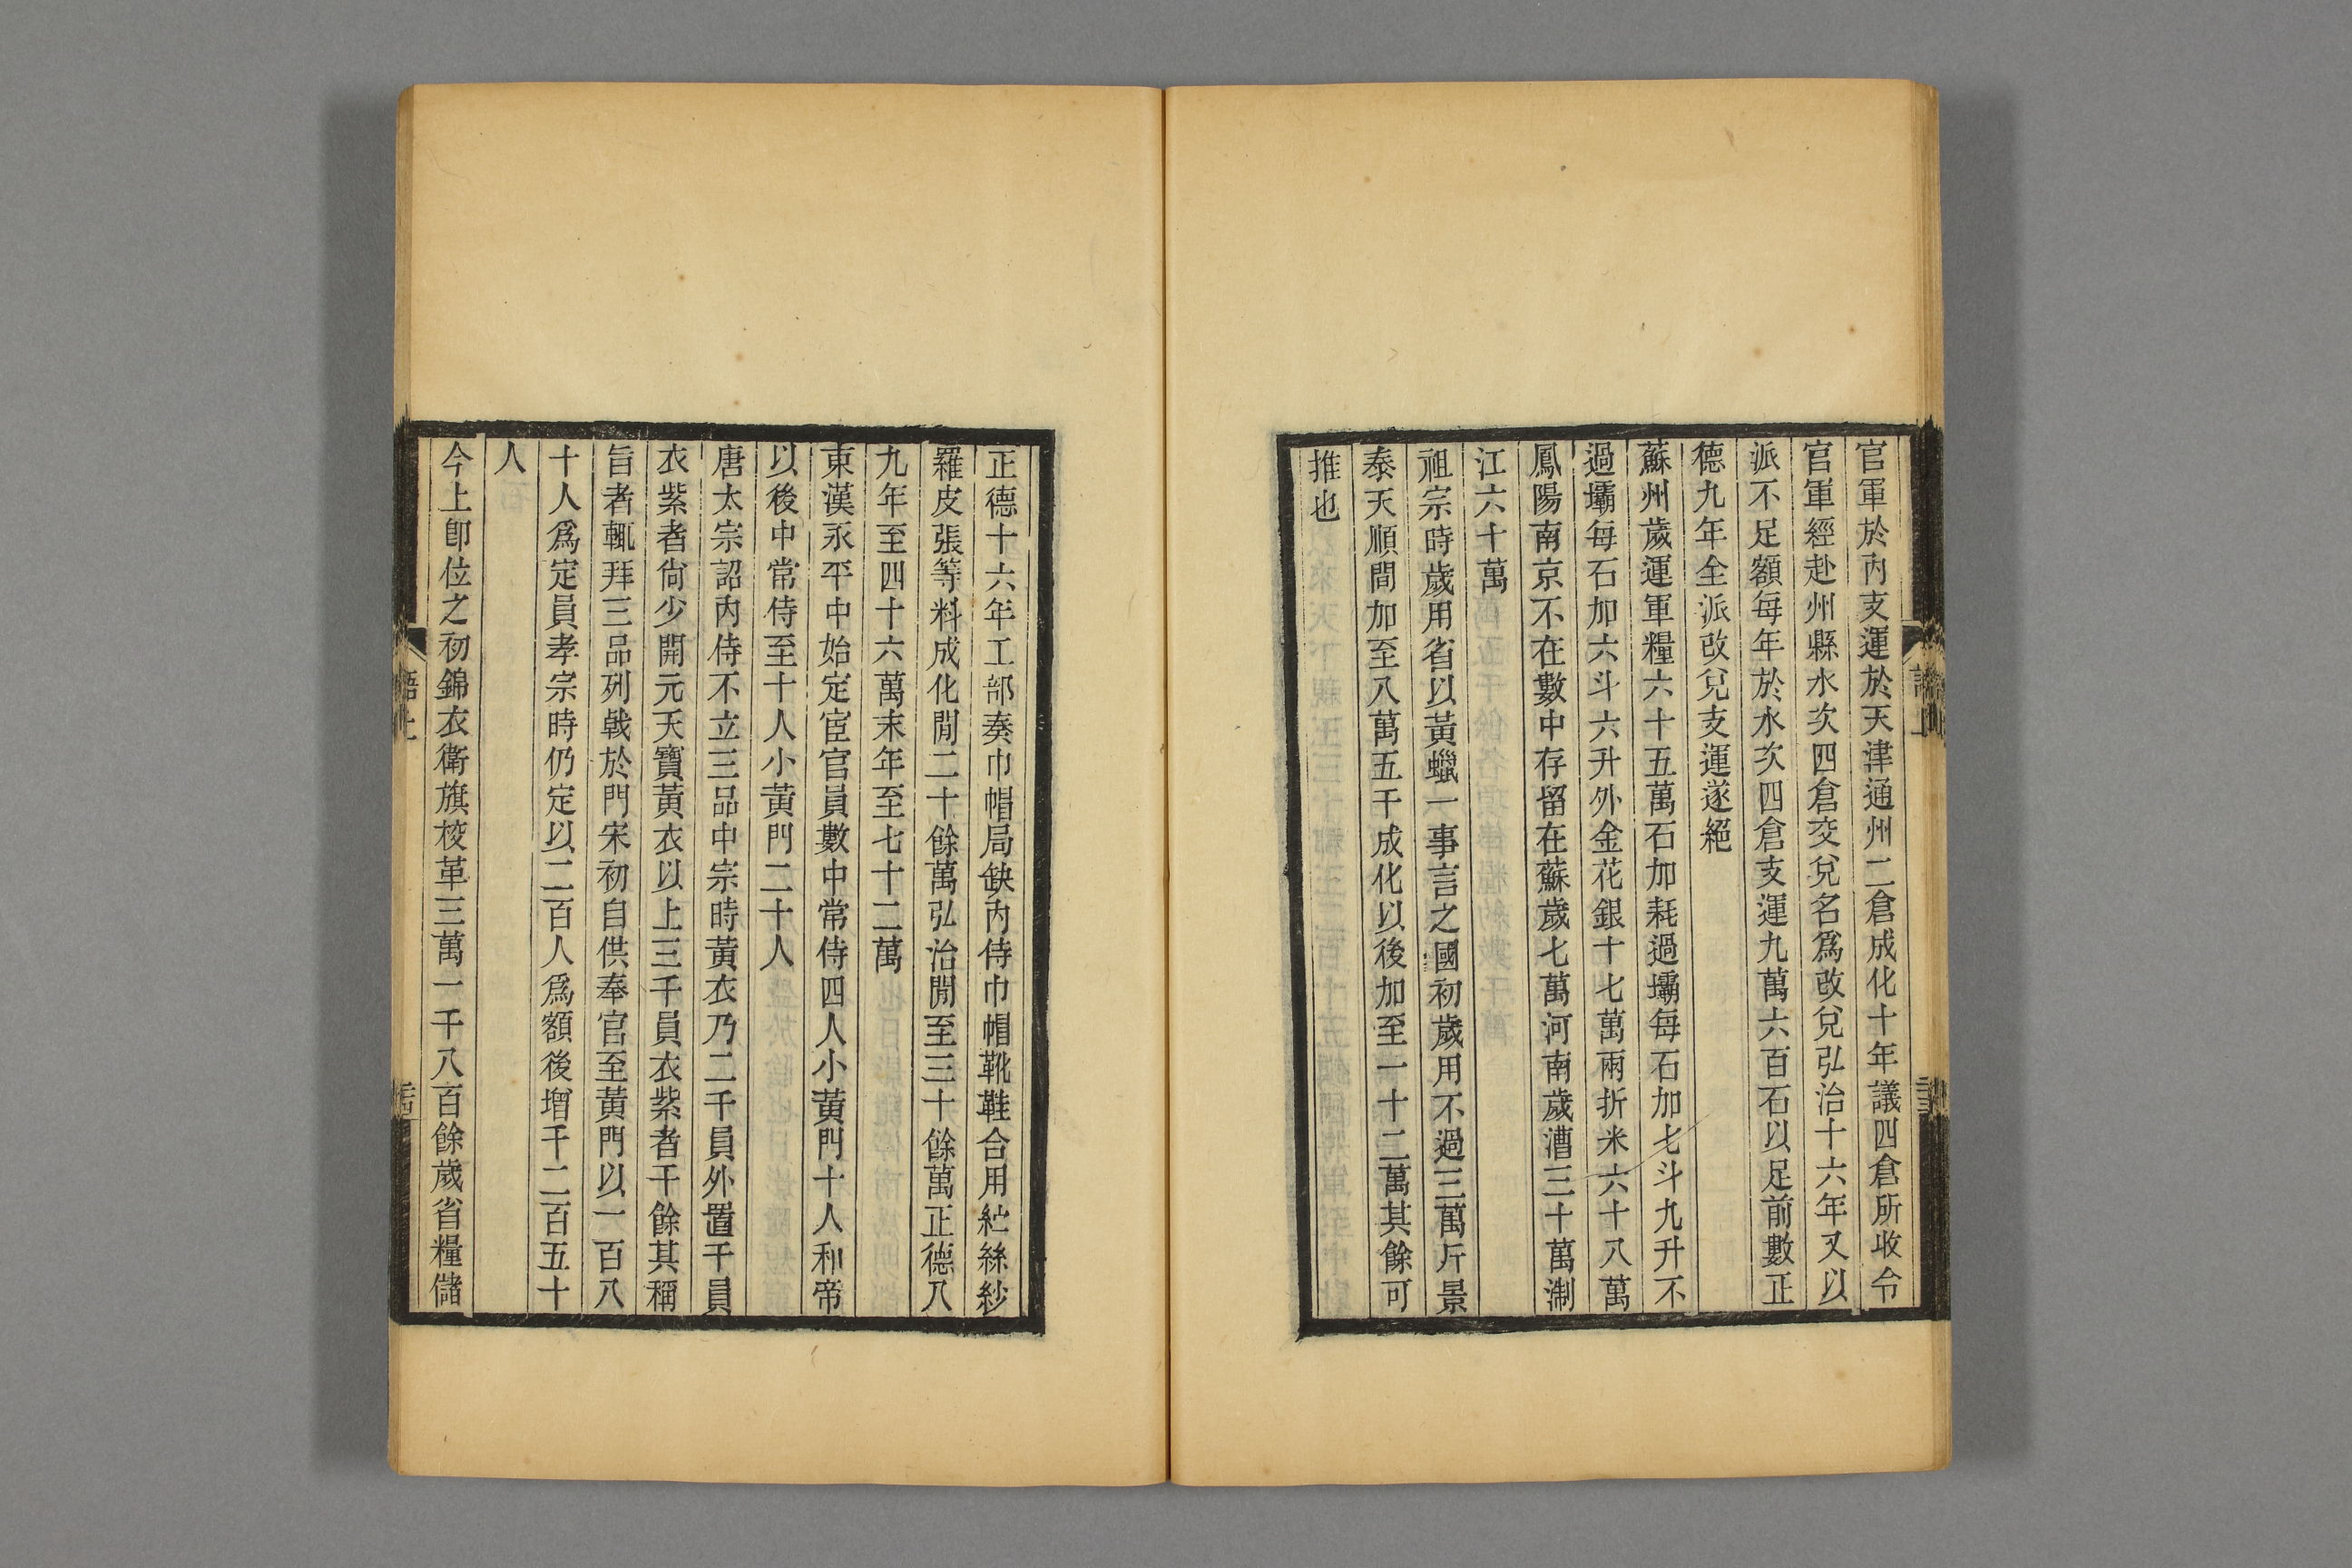 官軍於內支運於天津通州二倉成化十年議四倉所收令
官軍經赴州縣水次四倉交兌名爲改兌弘治十六年又以
派不足額每年於水次四倉支運九萬六百石以足前數正
德九年全派改兌支運遂絕
蘇州歲運軍糧六十五萬石加耗過壩每石加七斗九升不
過壩每石加六斗六升外金花銀十七萬兩折米六十八萬
鳳陽南京不在數中存留在蘇歲七萬河南歲漕三十萬淛
江六十萬
祖宗時歲用省以黃蠟一事言之國初歲用不過三萬斤景
泰天順間加至八萬五千成化以後加至一十二萬其餘可
推也
正德十六年工部奏巾帽局缺內侍巾帽靴鞋合用紵絲紗
羅皮張等料成化閒二十餘萬弘治閒至三十餘萬正德八
九年至四十六萬末年至七十二萬
東漢永平中始定宦官員數中常侍四人小黃門十人和帝
以後中常侍至十人小黃門二十人
唐太宗詔內侍不立三品中宗時黃衣乃二千員外置千員
衣紫者尙少開元天寶黃衣以上三千員衣紫者千餘其稱
旨者輒拜三品列戟於門宋初自供奉官至黃門以一百八
十人爲定員孝宗時仍定以二百人爲額後增千二百五十
人
今上卽位之初錦衣衛旗校革三萬一千八百餘歲省糧儲
語上